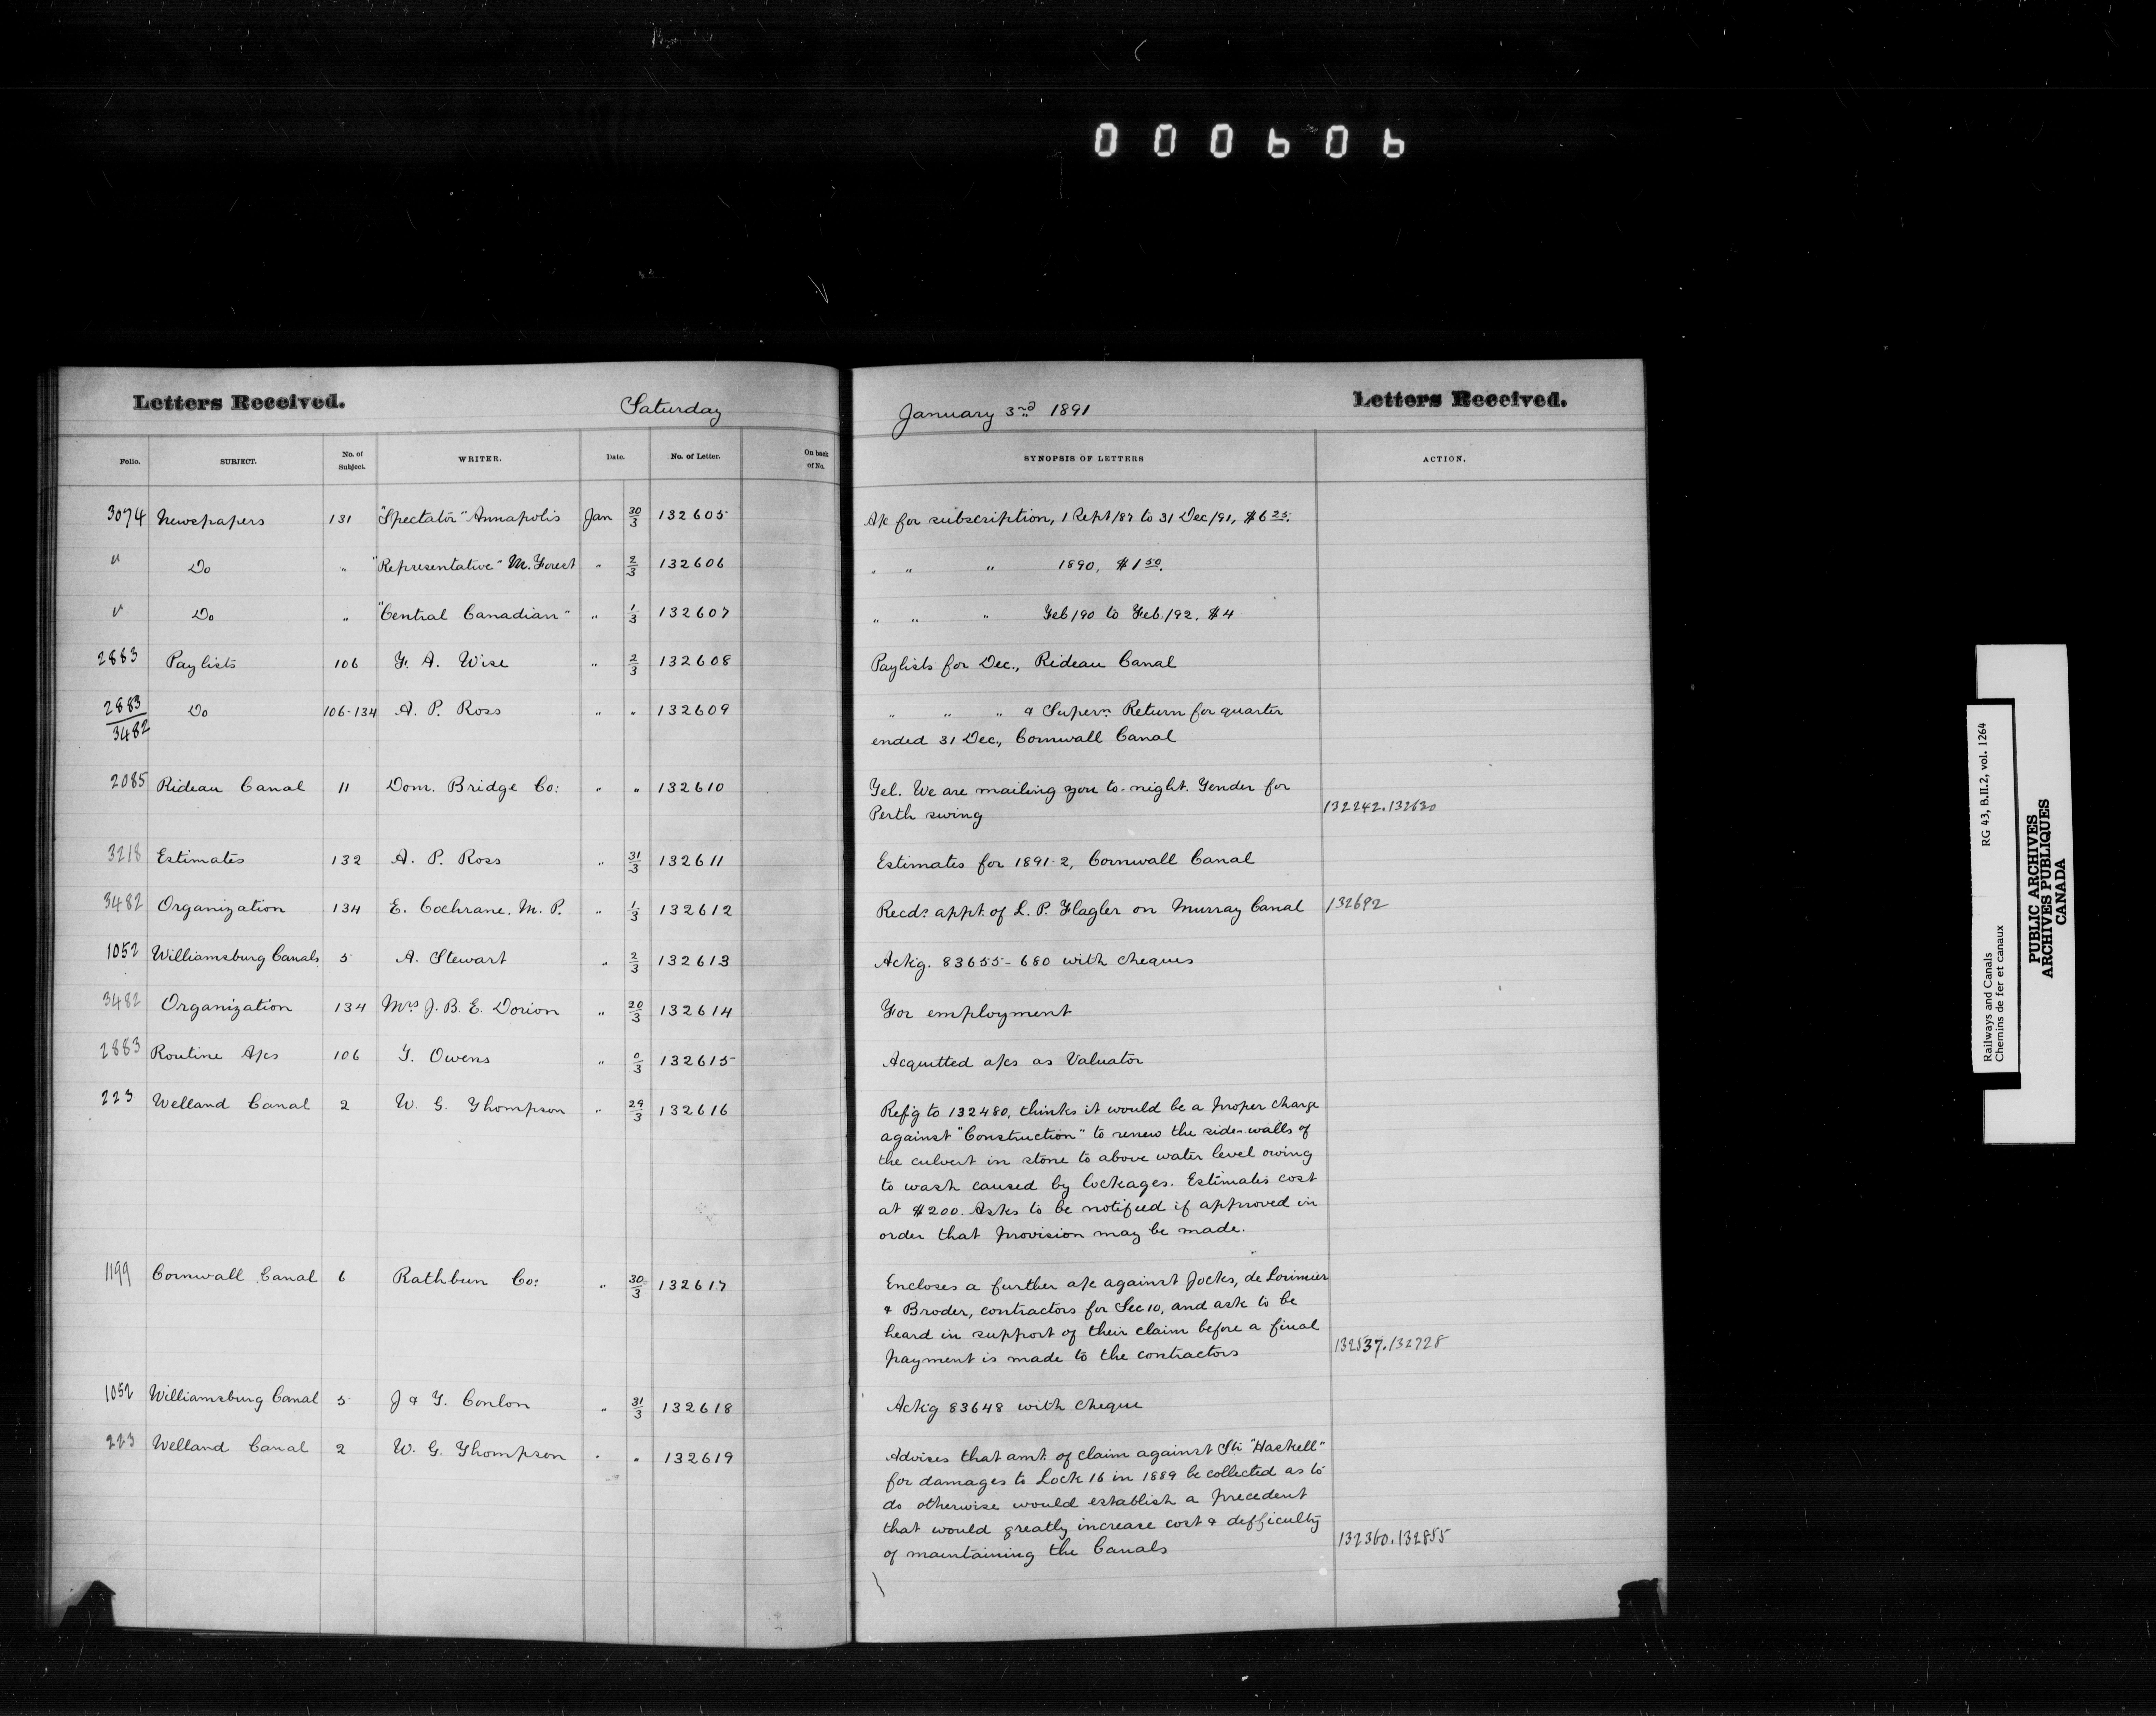 000606
Letters Received. Saturday January 3rd 1891 Letters Received.
Folio. SUBJECT. No. of Subject. WRITER. Date. No. of Letter. On back of No. SYNOPSIS OF LETTERS ACTION.
3074 Newspapers 131 "Spectator" Annapolis Jan 30/3 132605 A/c for subscription, 1 Sept/87 to 31 Dec/91, $6 25.
" Do " "Representative" M. Forest " 2/3 132606 " " " 1890, $1 50.
" Do " "Central Canadian" " 1/3 132607 " " " Feb/90 to Feb/92. $4
2883 Paylists 106 F. A. Wise " 2/3 132608 Paylists for Dec., Rideau Canal
2883/3482 Do 106-134 A. P. Ross " " 132609 " " " & Supern. Return for quarter
ended 31 Dec., Cornwall Canal
2085 Rideau Canal 11 Dom. Bridge Co: " " 132610 Tel. We are mailing you to-night. Tender for
Perth swing 132242.132630
3218 Estimates 132 A. P. Ross " 31/3 132611 Estimates for 1891-2, Cornwall Canal
3482 Organization 134 E. Cochrane. M. P. " 1/3 132612 Recds. appt. of L. P. Flagler on Murray Canal 132692
1052 Williamsburg Canals 5 A. Stewart " 2/3 132613 Ackg. 83655-680 with cheques
3482 Organization 134 Mrs J. B. E. Dorion " 20/3 132614 For employment
2883 Routine A/cs 106 T. Owens " 0/3 132615 Acquitted a/cs as Valuator
223 Welland Canal 2 W. G. Thompson " 29/3 132616 Refg to 132480, thinks it would be a proper charge
against "Construction" to renew the side-walls of
the culvert in stone to above water level owing
to wash caused by lockages. Estimates cost
at $200. Asks to be notified if approved in
order that provision may be made.
1199 Cornwall Canal 6 Rathbun Co: " 30/3 132617 Encloses a further a/c against Jocks, de Lorimier
& Broder, contractors for Sec 10, and ask to be
heard in support of their claim before a final
payment is made to the contractors 132537.132728
1052 Williamsburg Canal 5 J & T. Conlon " 31/3 132618 Ackg 83648 with cheque
223 Welland Canal 2 W. G. Thompson " " 132619 Advises that amt. of claim against Str "Haskell"
for damages to Lock 16 in 1889 be collected as to
do otherwise would establish a precedent
that would greatly increase cost & difficulty
of maintaining the Canals 132360.132855
Railways and Canals RG 43, B.II.2, vol. 1264
Chemins de fer et canaux
PUBLIC ARCHIVES
ARCHIVES PUBLIQUES
CANADA